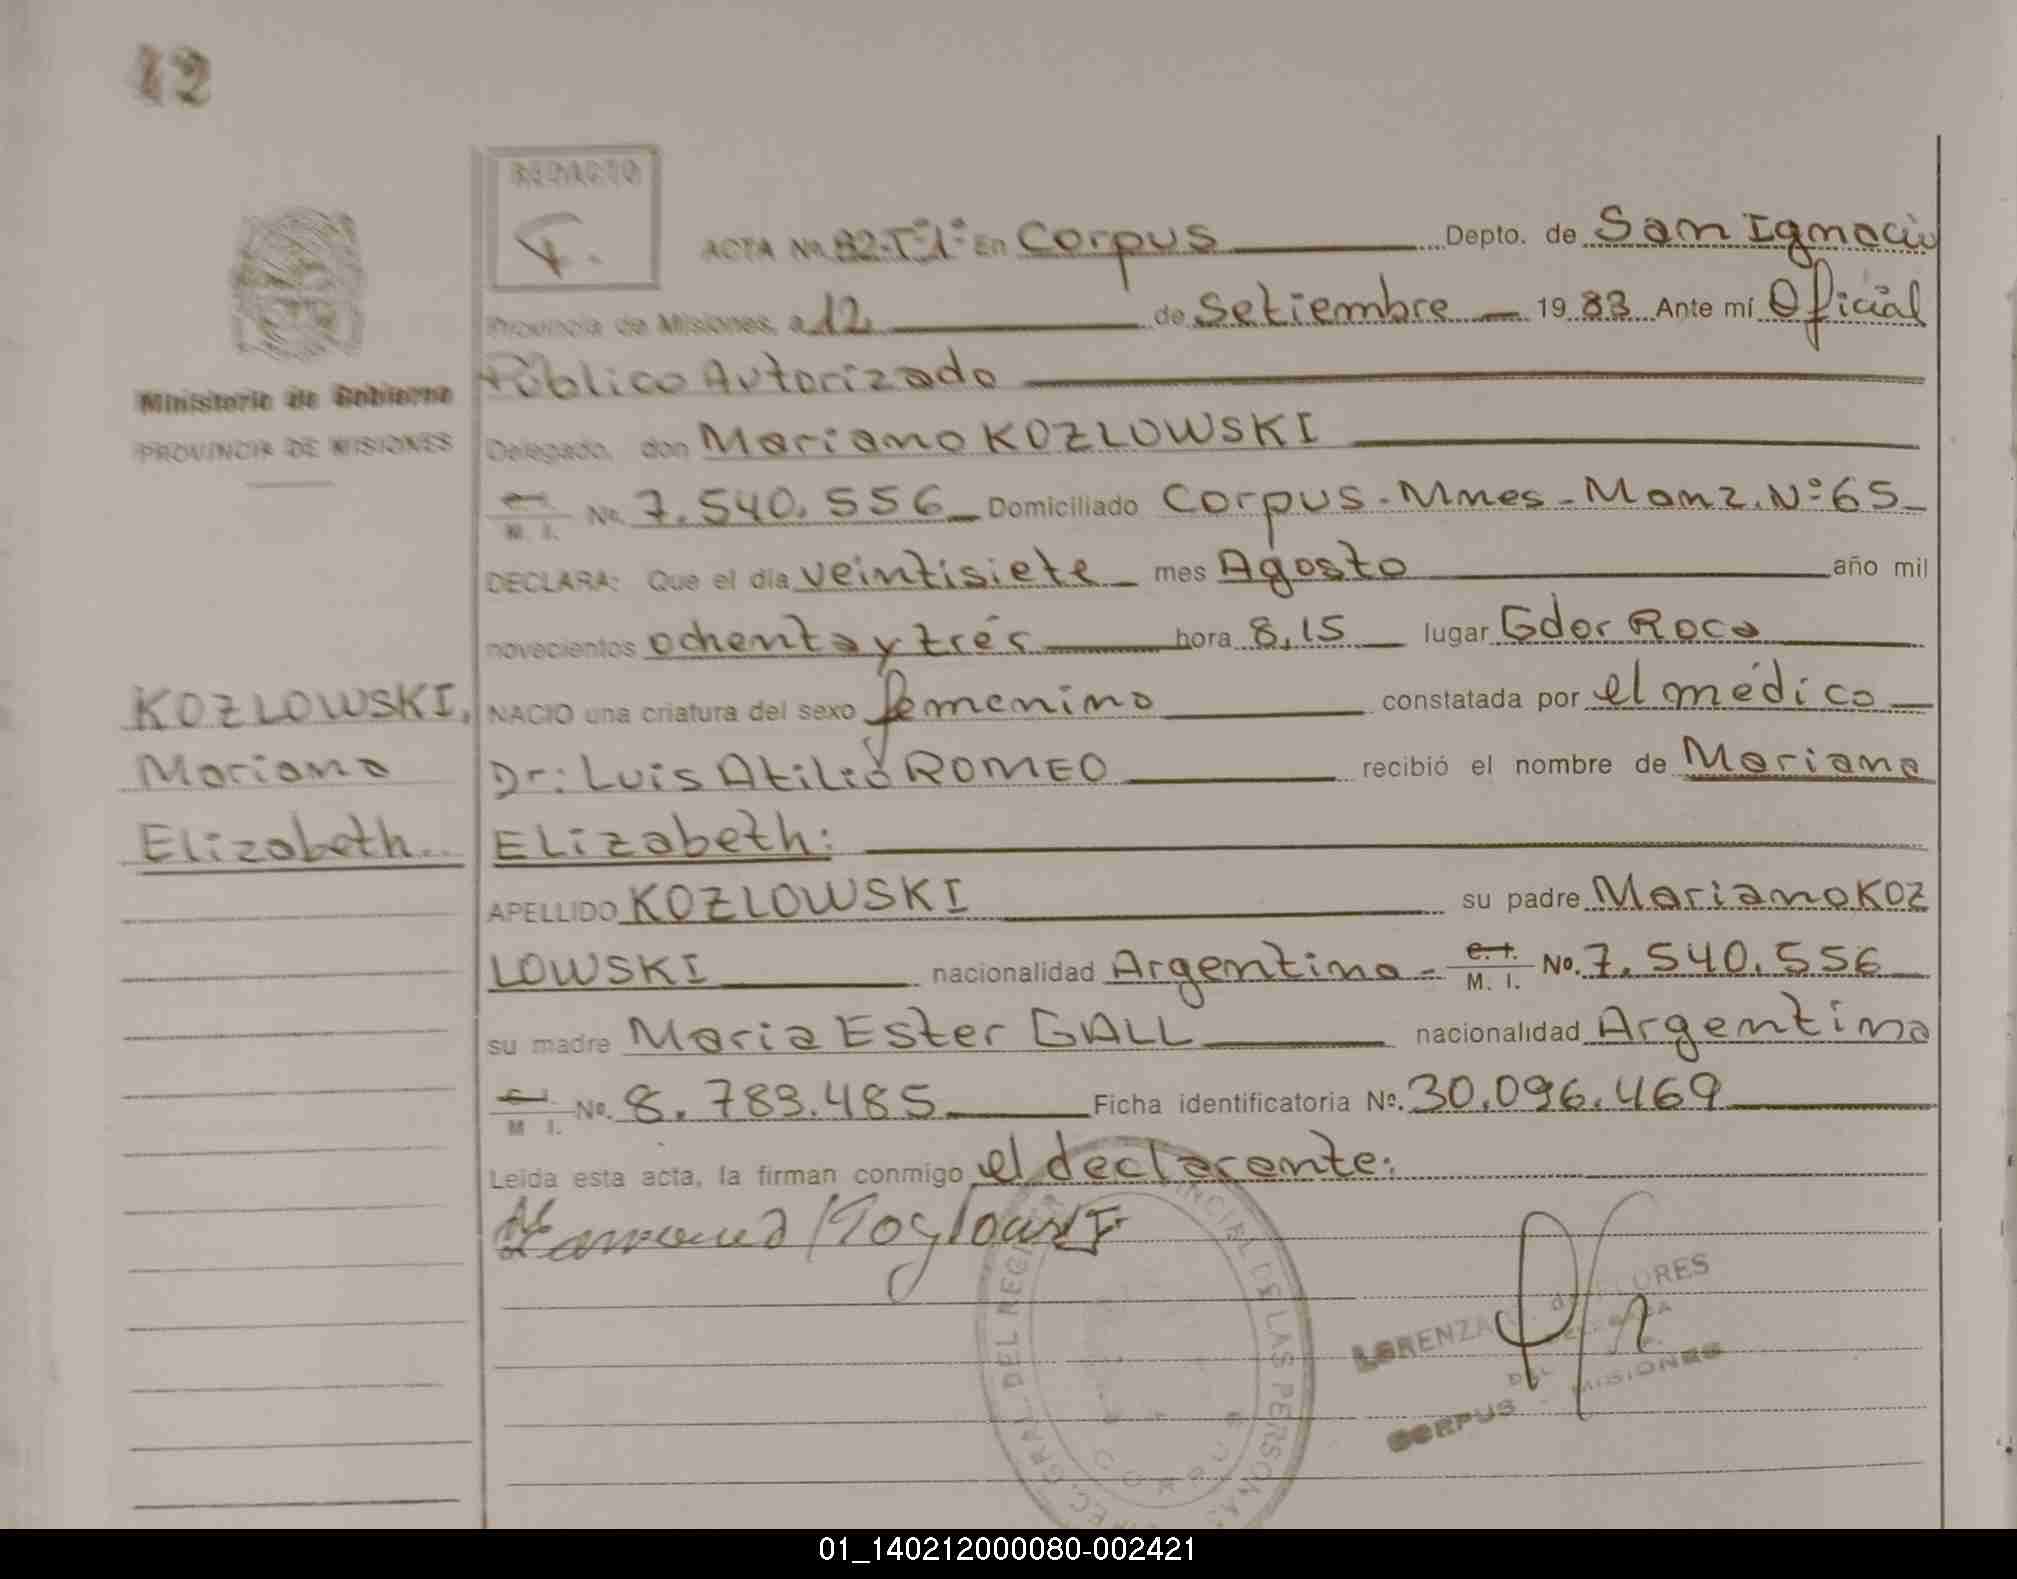 12
REDACTO
ACTA No. 82-Tº1º En Corpus Depto. de San Ignacio
Provincia de Misiones, a 12 de Setiembre 1983 Ante mí Oficial
Público Autorizado
Ministerio de Gobierno
PROVINCIA DE MISIONES
Delegado, don Mariano KOZLOWSKI
M. I. No. 7.540.556 Domiciliado Corpus-Mnes-Manz.Nº65
DECLARA: Que el día veintisiete mes Agosto año mil
novecientos ochenta y trés hora 8,15 lugar Gdor Roca
KOZLOWSKI,
NACIO una criatura del sexo femenino constatada por el médico
Mariana
Dr: Luis Atilio ROMEO recibió el nombre de Mariana
Elizabeth
ELizabeth:
APELLIDO KOZLOWSKI su padre Mariano KOZ
LOWSKI nacionalidad Argentina - M. I. No. 7.540.556
su madre Maria Ester GALL nacionalidad Argentina
M I. No. 8.783.485 Ficha identificatoria Nº. 30.096.469
Leída esta acta, la firman conmigo el declarante:
GRAL. DEL REGI NCIAL DE LAS PERSONAS
LORENZA de FLORES
DELEGADA
CORPUS - MISIONES
01_140212000080-002421